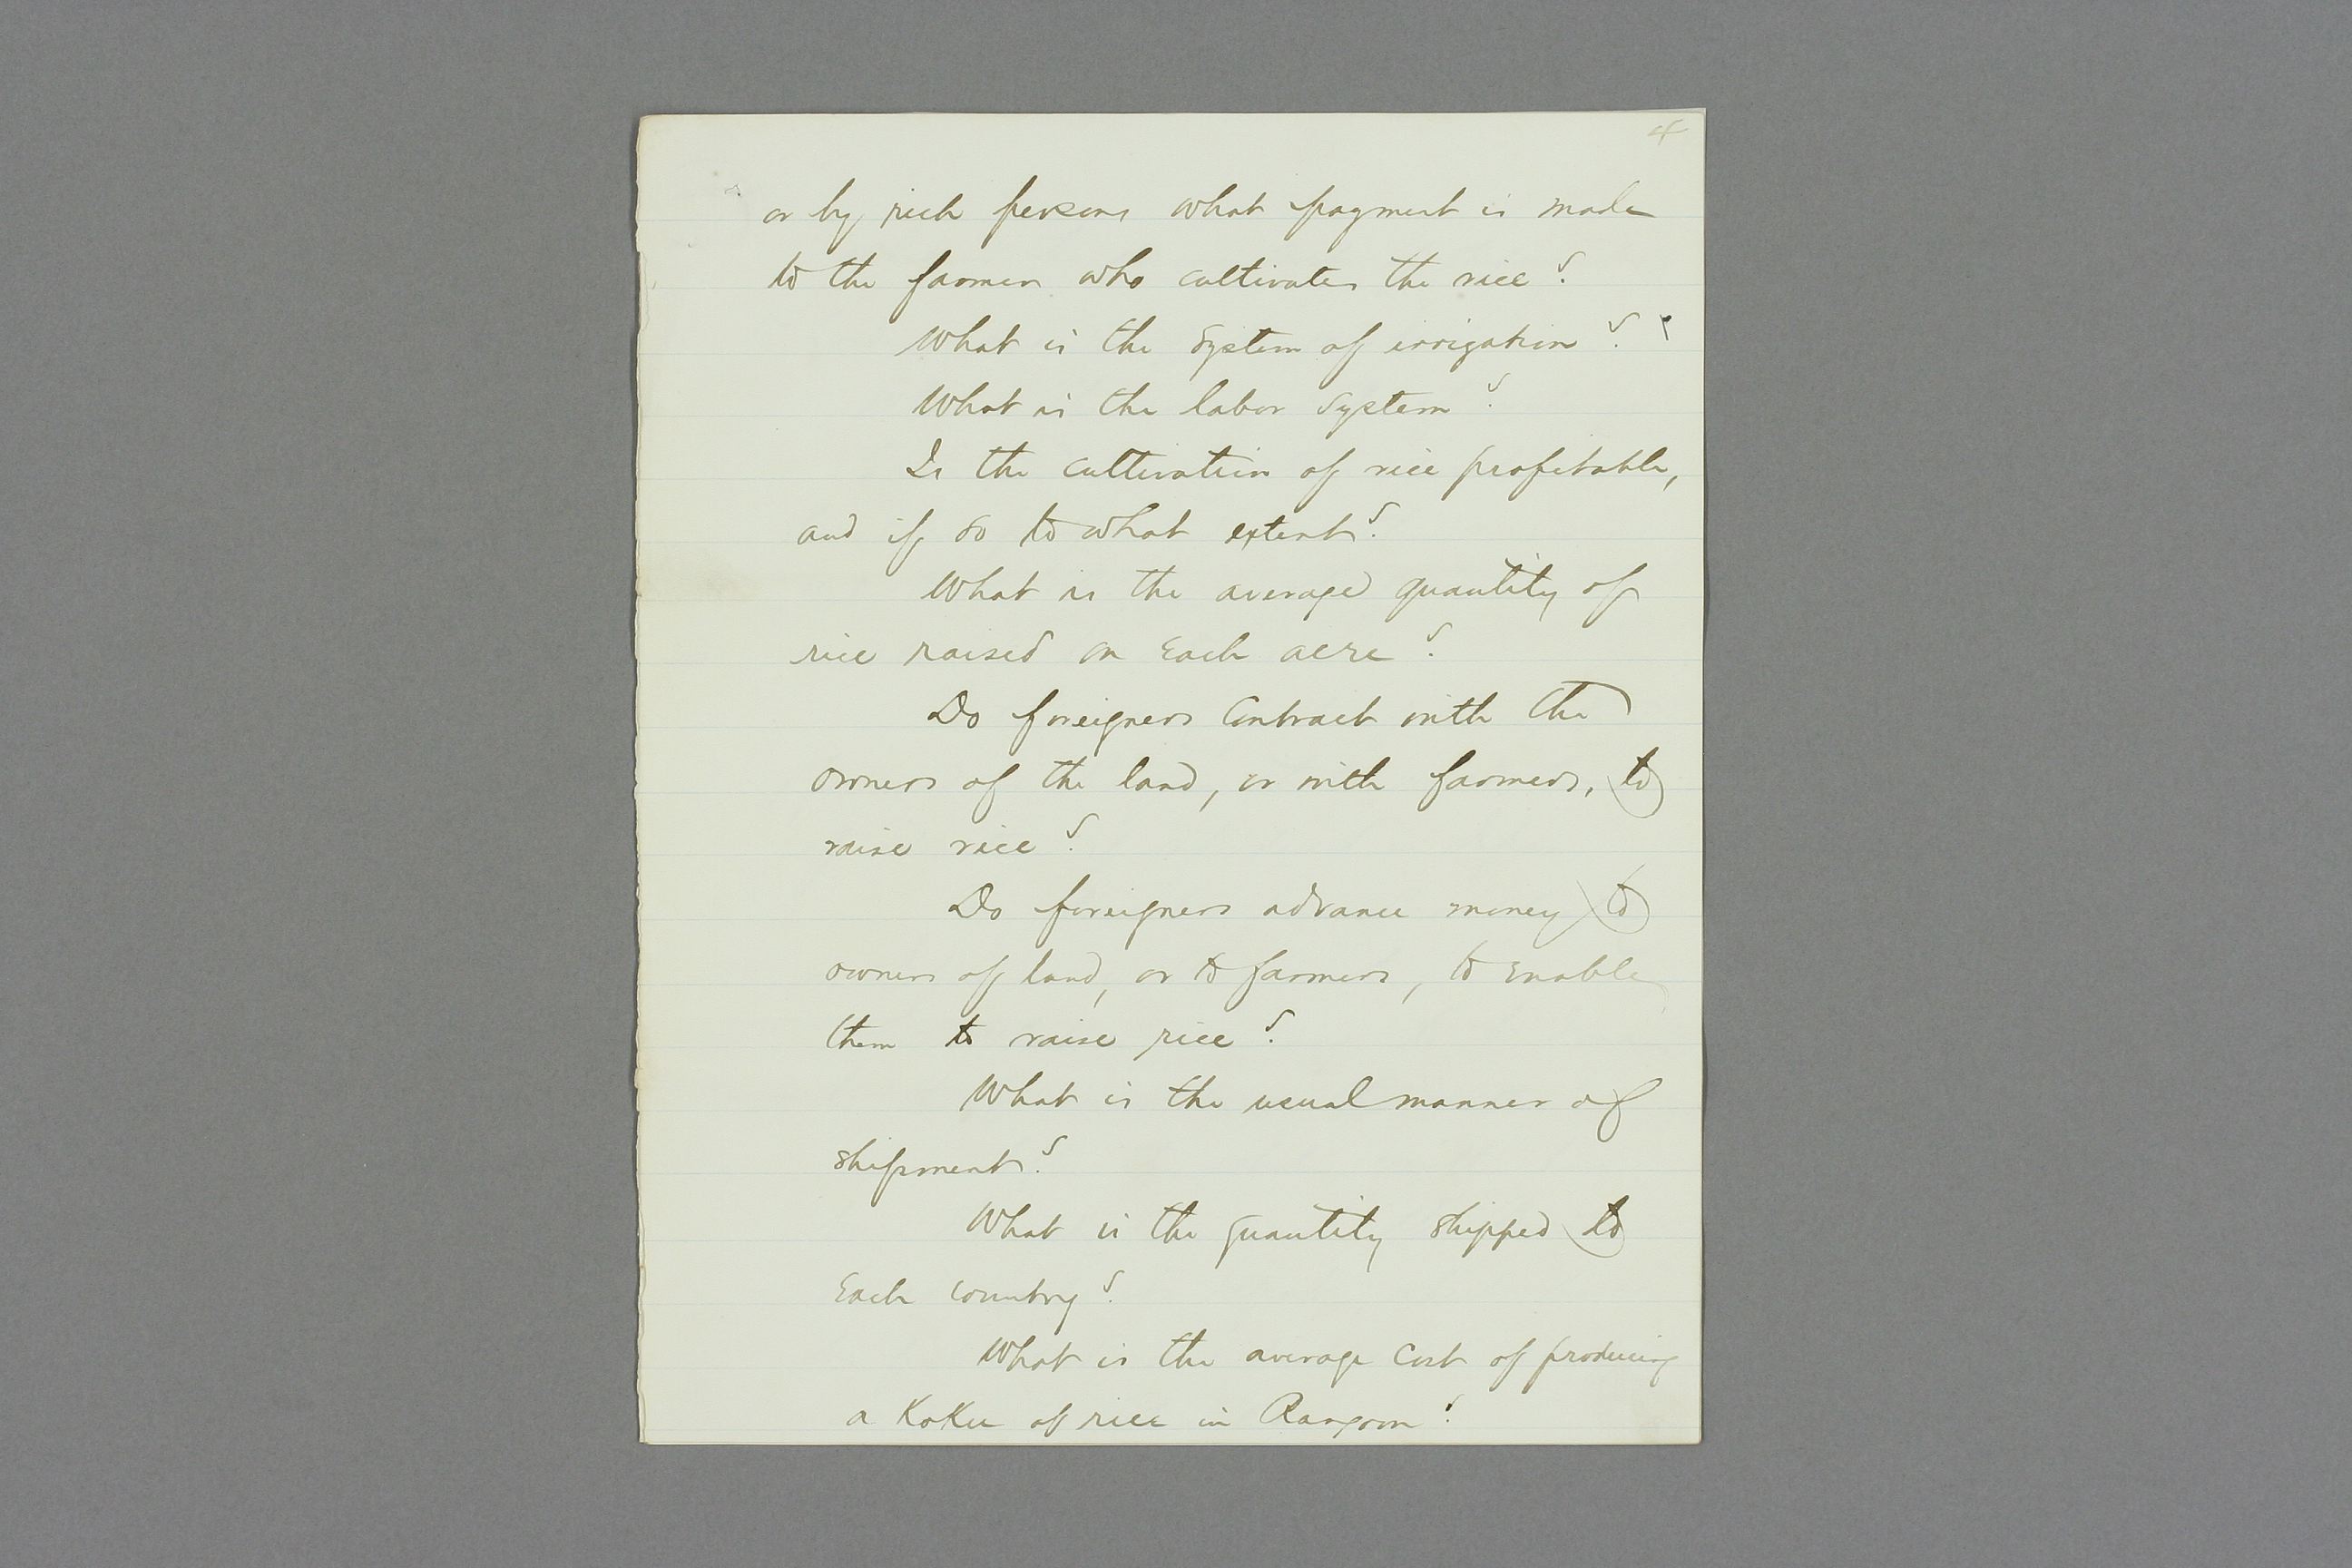 4
or by rich persons what payment is made
to the farmer who cultivates the rice?
What is the system of irrigation?
What is the labor system?
Is the cultivation of rice profitable,
and if so to what extent?
What is the average quantity of
rice raised on Each acre?
Do foreigners Contract with the
owners of the land, or with farmers, to
raise rice?
Do foreigners advance money to
owners of land, or to farmers, to Enable
them to raise rice?
What is the usual manner of
shipment?
What is the quantity shipped to
Each country?
What is the average Cost of producing
a KoKu of rice in Rangoon?